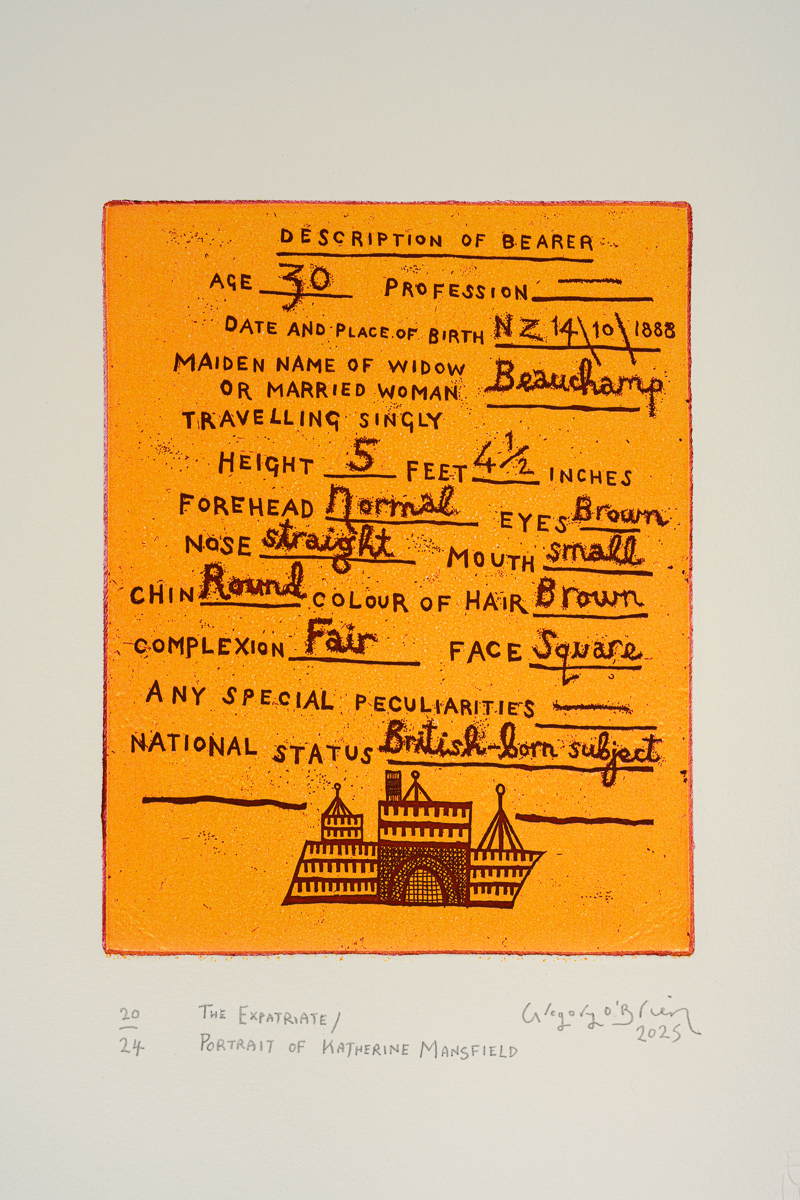 DESCRIPTION OF BEARER
AGE 30 PROFESSION —
DATE AND PLACE OF BIRTH NZ 14\10\1888
MAIDEN NAME OF WIDOW
OR MARRIED WOMAN Beauchamp
TRAVELLING SINGLY
HEIGHT 5 FEET 4 1/2 INCHES
FOREHEAD Normal EYES Brown
NOSE straight MOUTH small
CHIN Round COLOUR OF HAIR Brown
COMPLEXION Fair FACE Square
ANY SPECIAL PECULIARITIES —
NATIONAL STATUS British-born subject
20/24 THE EXPATRIATE/ Gregory O'Brien
PORTRAIT OF KATHERINE MANSFIELD 2025